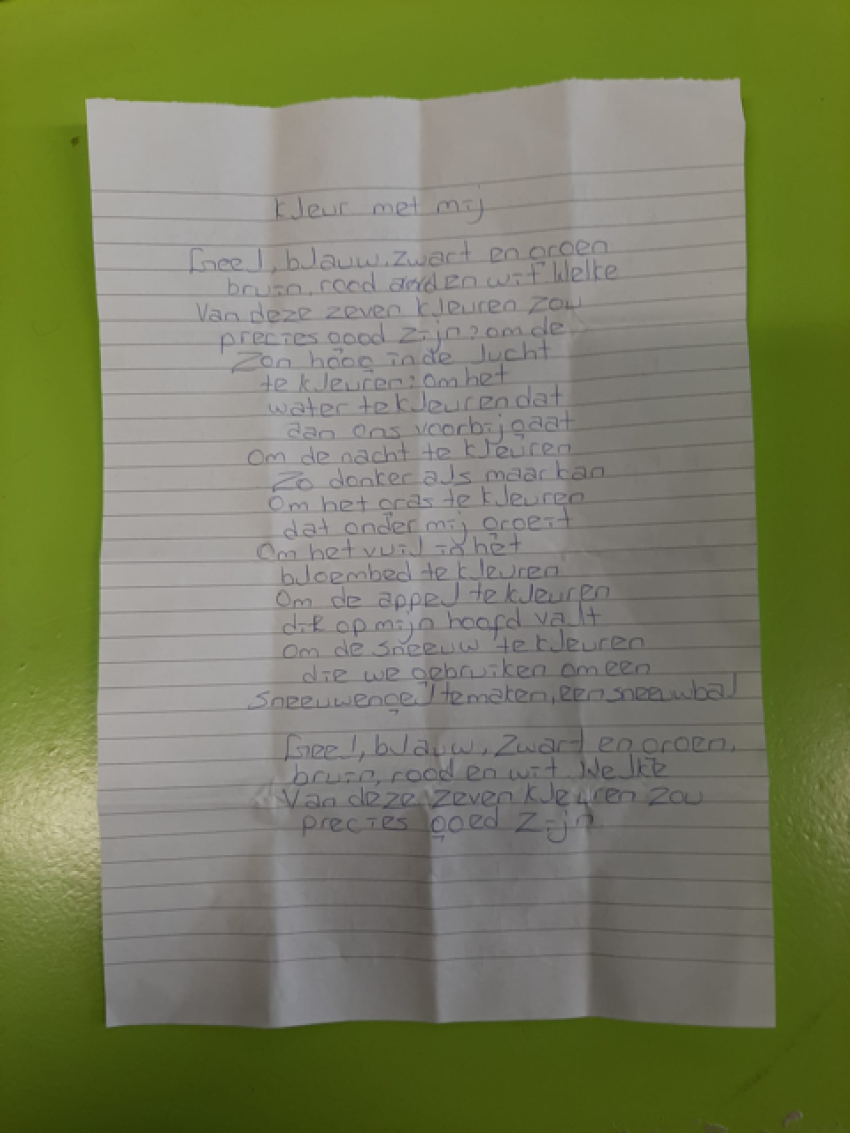 Kleur met mij
Geel, blauw, zwart en groen
bruin, rood en wit Welke
Van deze zeven kleuren zou
precies good zijn? om de
Zon hoog in de lucht
te kleuren? om het
water te kleuren dat
aan ons voorbij gaat
Om de nacht te kleuren
Zo donker als maar kan
Om het gras te kleuren
dat onder mij groeit
Om het vuil in het
bloembed te kleuren
Om de appel te kleuren
die op mijn hoofd valt
om de sneeuw te kleuren
die we gebruiken om een
Sneeuwengel te maken, een sneeuwbal
Geel, blauw, zwart en groen,
bruin, rood en wit Welke
Van deze zeven kleuren zou
precies goed zijn